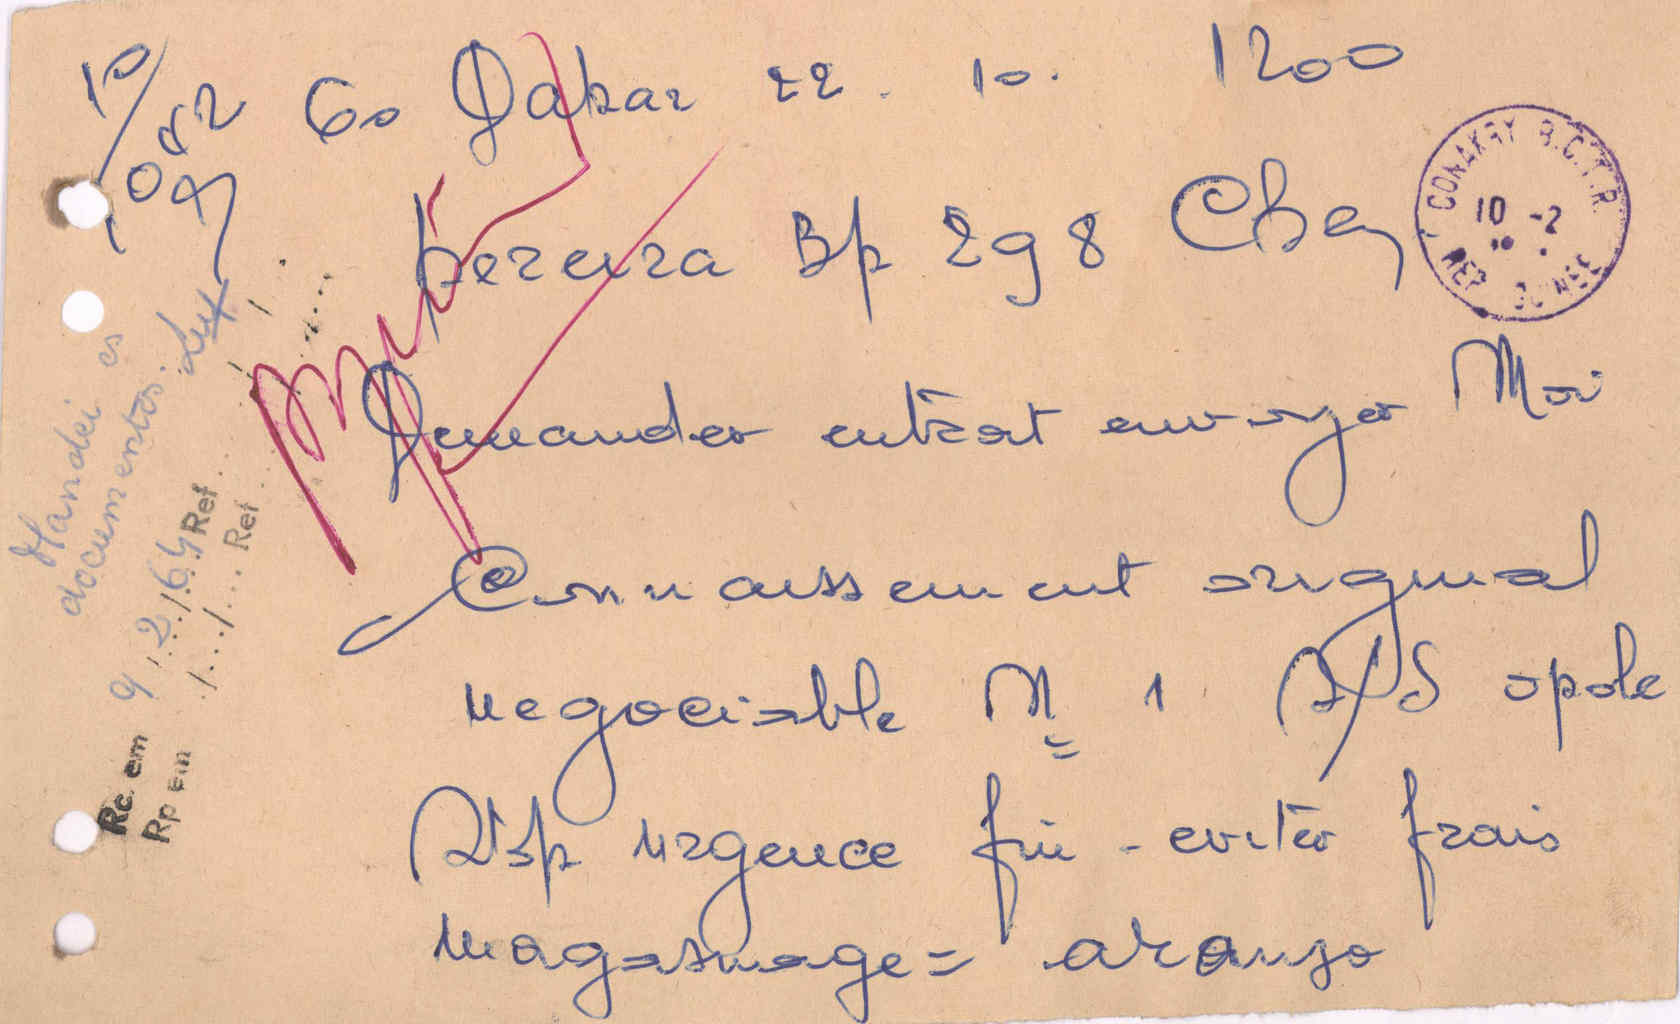 10/
082 60 Dakar 22. 10. 1200
CONAKRY B.C.T.R.
10 -2
REP GUINEE
pereira Bp 298 Cky
Demander entrat envoyer Moi
Connaissement original
negociable N= 1 S/S opole
Stop urgence fin - eviter frais
magasinage = araujo
Mandei os
documentos.
Rc. em 9/2/64 Ref...
Rp em .../.../... Ref...